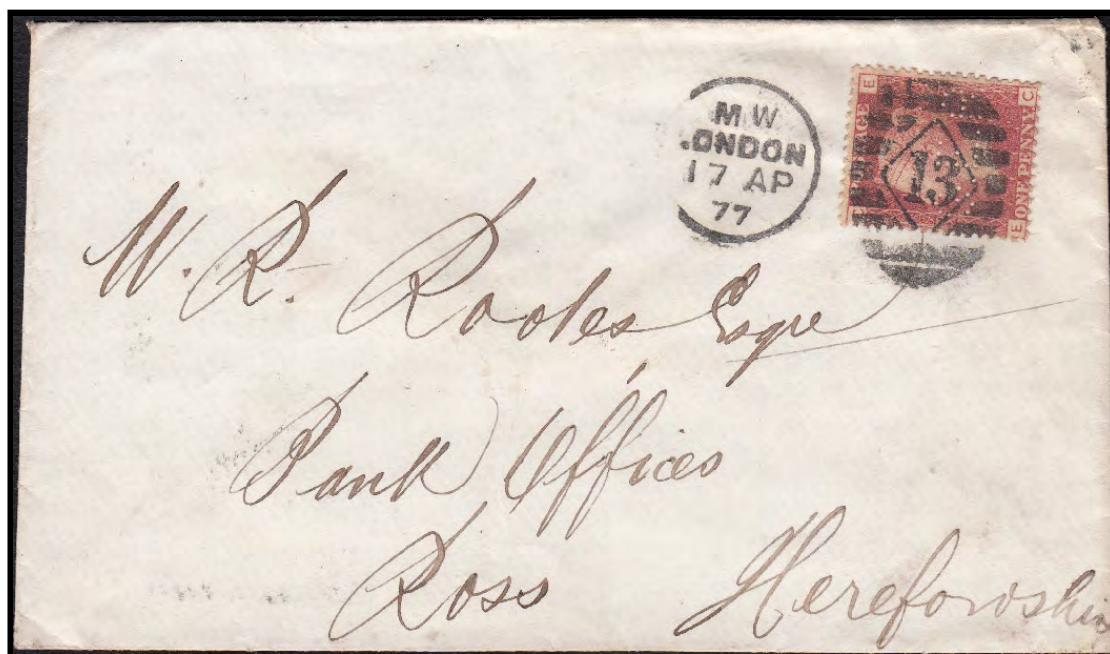 M W
LONDON
17 AP
77
E
C
13
E
ONE PENNY
W. R. Rootes Esqre
Bank Offices
Ross Herefordshire